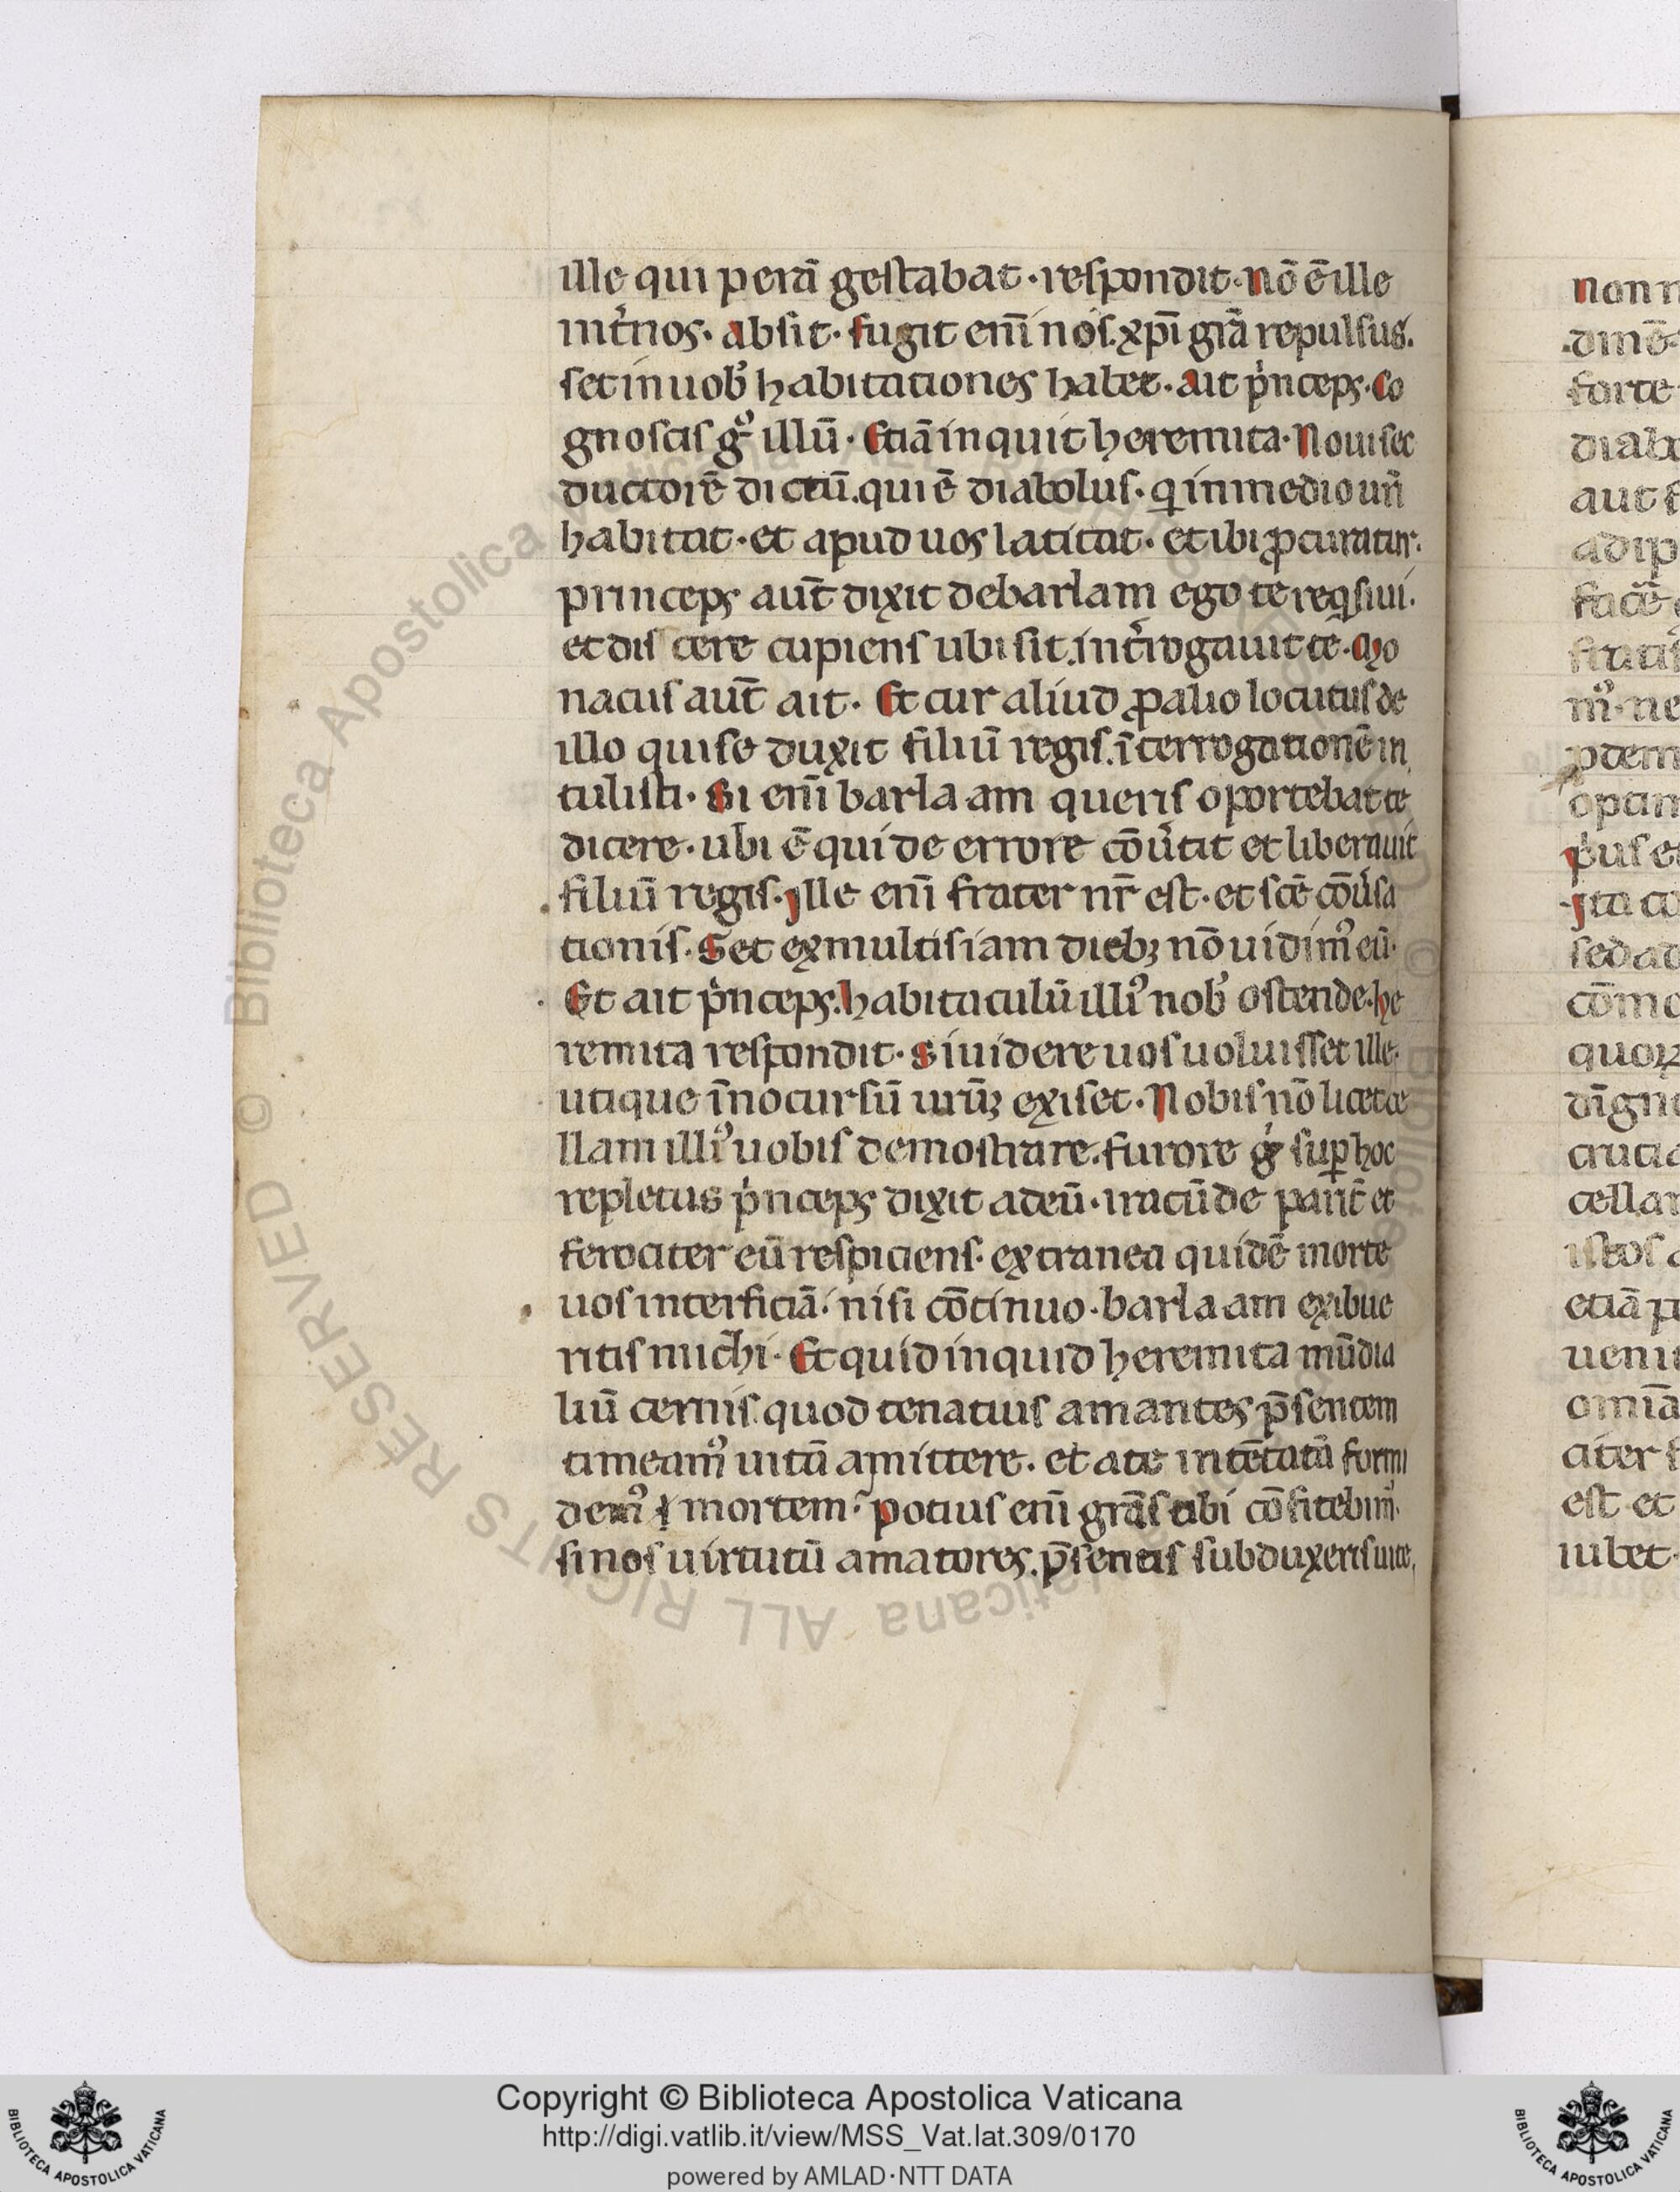 ille qui perā gestabat · respondit · nō ē ille
int̉nos · absit · fugit eni̅ nos . xp̄i gr̄a repulsus .
set in uob̉ habitationes habet · ait p̉nceps · Co
gnoscis gͦ illū · Etiā inquit heremita · Noui sec
ductorē dictū . qui ē diabolus · qͥ in medio ur̄i
habitat · et apud uos latitat · et ibi ꝓcuratur ·
princeps aut̄ dixit de barlam ego te reqͥsiui ·
et discere cupiens ubi sit . int̉rogauit te · Mo
nacus aut̄ ait · Et cur aliud ꝓ alio locutus de
illo qui seduxit filiū regis . īterrogationē in
tulisti · Si eni̅ barlaam queris oportebat te
dicere · ubi ē qui de errore cōủtit et liberauit
filiū regis . Ille eni̅ frater nr̄ est · et scē cōủsa
tionis . Set ex multis iam diebꝫ nō uidimꝰ eū ·
Et ait p̉nceps . habitaculū illiꝰ nob̉ ostende · he
remita respondit · Si uidere uos uoluisset ille ·
utique īnocursū urūꝫ exiset · Nobis nō licet ce
llam illiꝰ uobis demostrare . furore g̉ suꝑ hoc
repletus p̉nceps dixit ad eū · iracūde parit̄ et
ferociter eū respiciens · extranea quidē morte
uos interficiā · nisi cōtinuo · barlaam exibue
ritis michi · Et quid inquid heremita mūdia
liū cernis . quod tenatius amantes p̄sentem
timeamꝰ uitā amittere . et a te intētatā formi
demꝰ mortem · potius eni̅ grā̄s tibi cōfitebimꝰ ·
si nos uirtutū amatores . p̄sentis subduxeris uite .
non n
dmē
forte
diab
aut
adip
facē
m̉ · ne
ptem
optan
p̉us et
Ita co
sed ad
cōmo
quoꝝ
dīgn
crucia
cellar
istos
etiā p
ueni
omīa
citer
est et
iubet ·
Copyright © Biblioteca Apostolica Vaticana
http://digi.vatlib.it/view/MSS_Vat.lat.309/0170
powered by AMLAD·NTT DATA
BIBLIOTECA APOSTOLICA VATICANA
BIBLIOTECA APOSTOLICA VATICANA